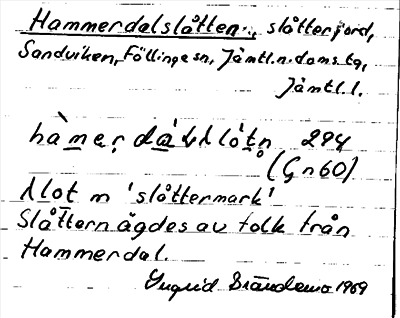 Hammerdalslåtten, slåtterjord,
Sandviken, Föllinge sn, Jämtl. n. doms. tg,
Jämtl. l.
294
(Gn 60)
m 'slåttermark'
Slåttern ägdes av folk från
Hammerdal.
Ingrid 1969